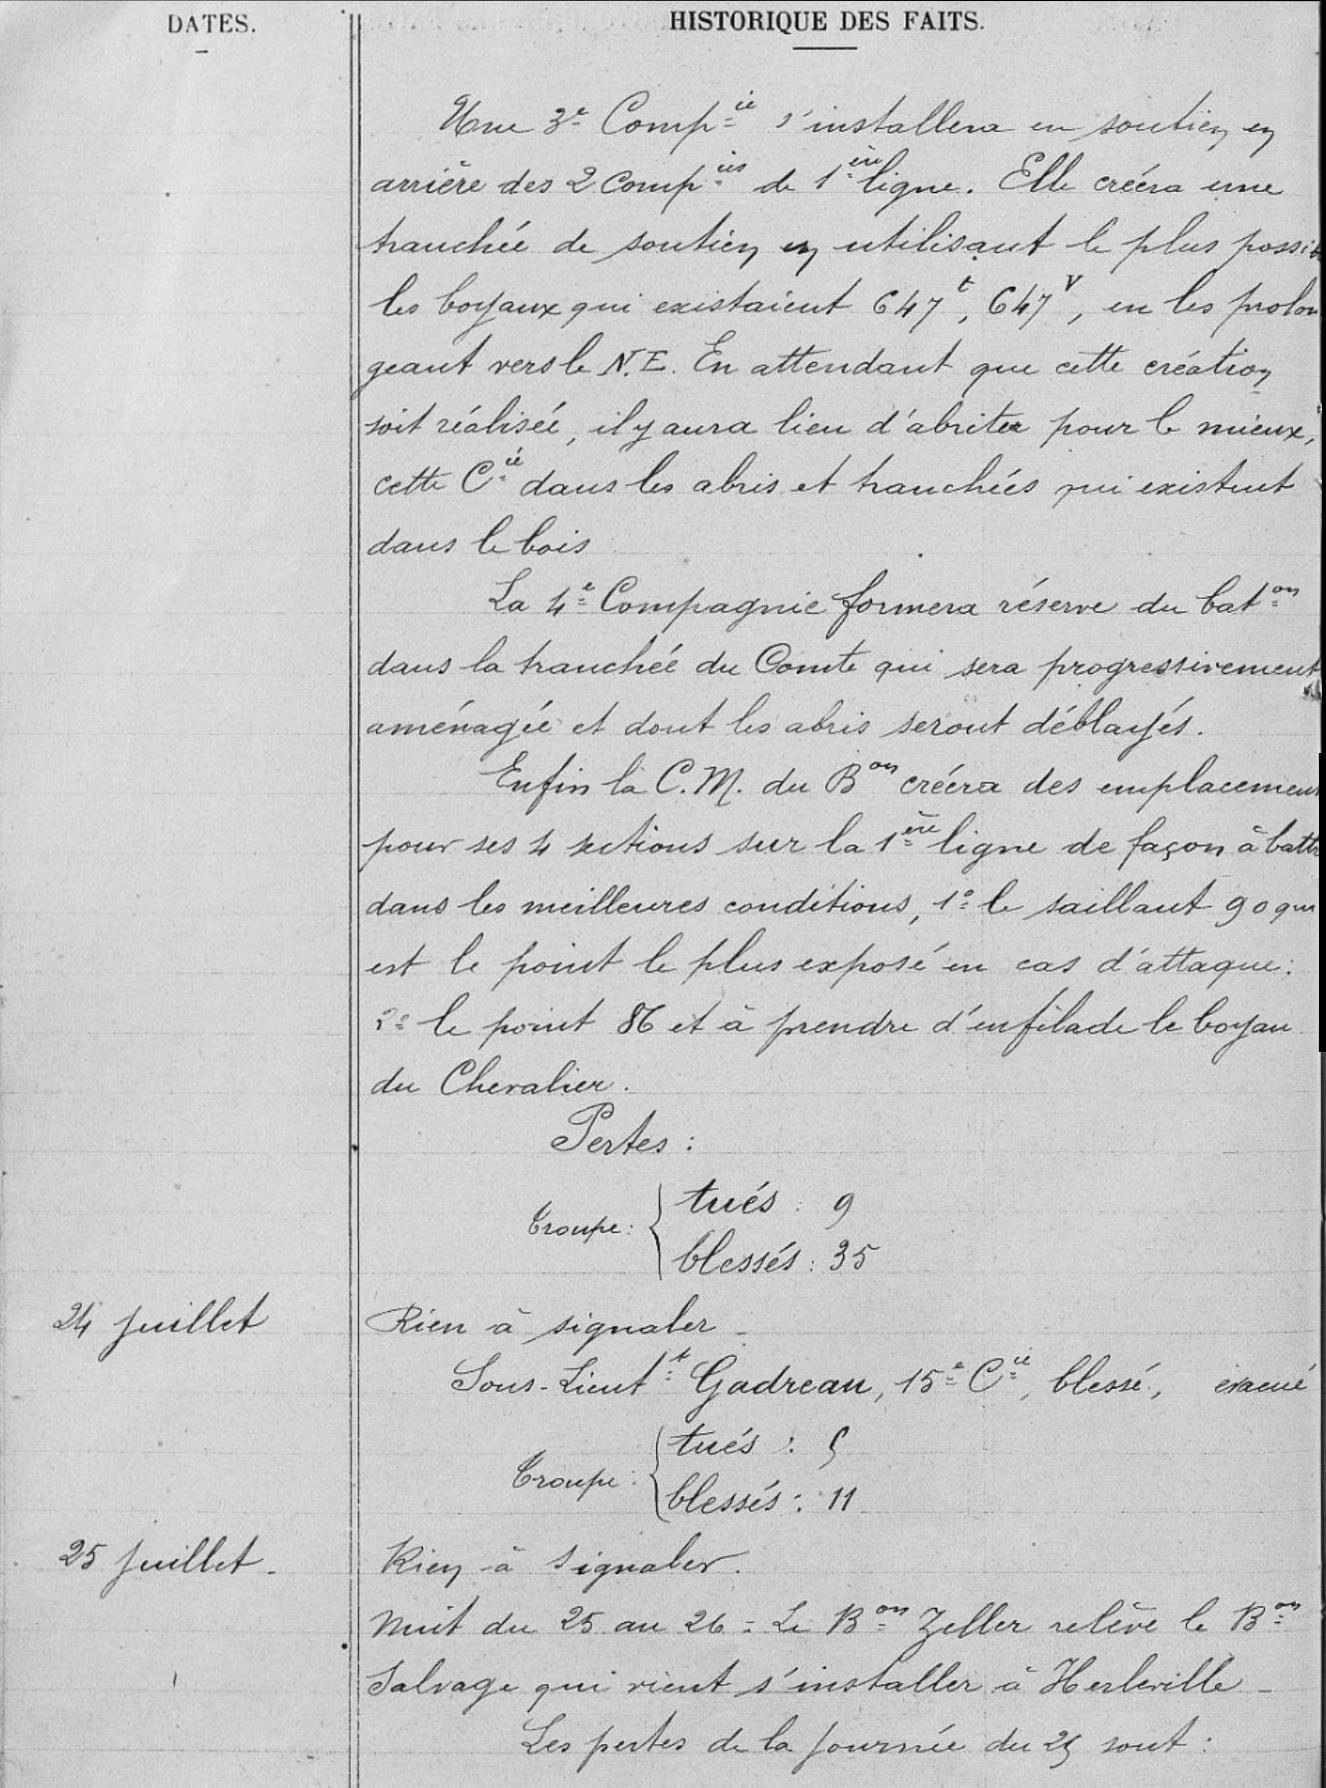 DATES.
HISTORIQUE DES FAITS.
Une 3e Compie s'installera en soutien en
arrière des 2 Compies de 1ère ligne. Elle créera une
tranchée de soutien en utilisant le plus possib
les boyaux qui existaient 647t, 647v, en les prolon
geant vers le N.E. En attendant que cette création
soit réalisée, il y aura lieu d'abriter pour le mieux,
cette Cie dans les abris et tranchées qui existent
dans le bois
La 4e Compagnie formera réserve du baton
dans la tranchée du Comte qui sera progressivement
aménagée et dont les abris seront déblayés.
Enfin la C.M. du Bon créera des emplacement
pour ses 4 sections sur la 1ère ligne de façon à battr
dans les meilleures conditions, 1º le saillant 90 qui
est le point le plus exposé en cas d'attaque:
2º le point 86 et à prendre d'enfilade le boyau
du Chevalier.
Pertes :
Troupe : { tués : 9
blessés : 35
24 juillet
Rien à signaler
Sous-Lieutt Gadreau, 15e Cie, blessé, évacué
Troupe : { tués : 5
blessés : 11
25 juillet -
Rien à signaler.
Nuit du 25 au 26 = Le Bon Zeller relève le Bon
Salvage qui vient s'installer à Herleville -
Les pertes de la journée du 25 sont :